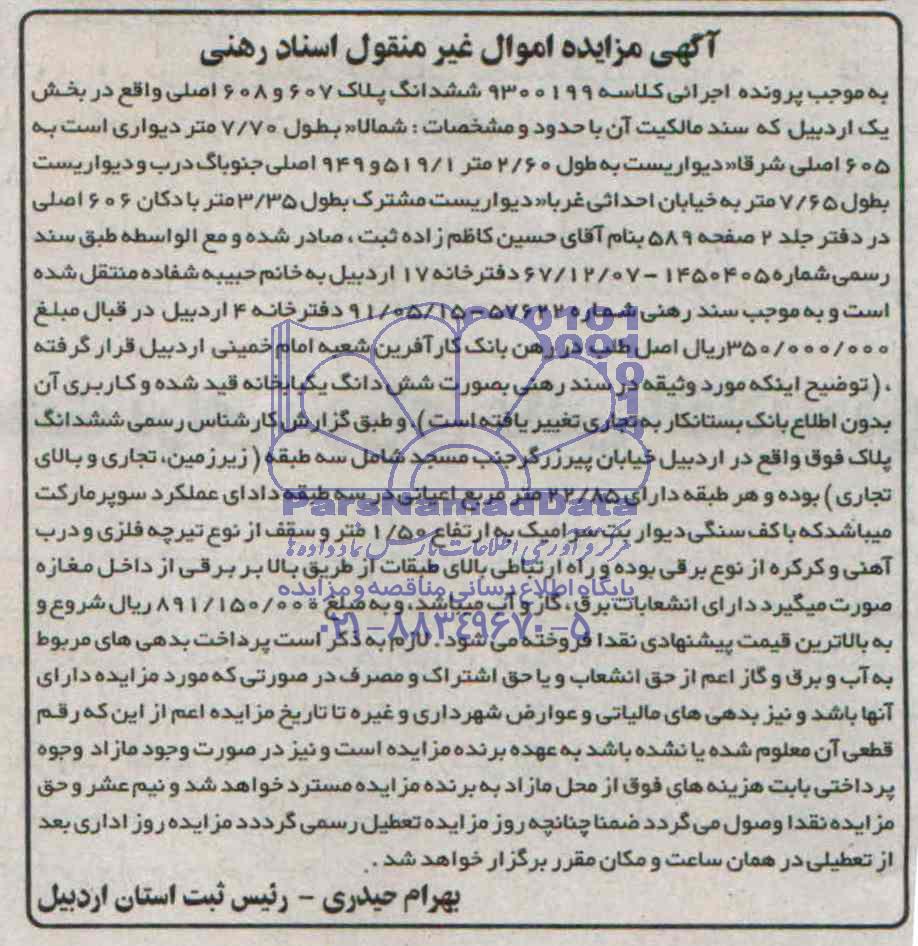 آگهی مزایده اموال غیر منقول اسناد رهنی
به موجب پرونده اجرائی کلاسه ۹۳۰۰۱۹۹ ششدانگ پلاک ۶۰۷ و ۶۰۸ اصلی واقع در بخش
یک اردبیل که سند مالکیت آن با حدود و مشخصات : شمالا« بطول ۷/۷۰ متر دیواری است به
۶۰۵ اصلی شرقا« دیواریست به طول ۲/۶۰ متر ۵۱۹/۱ و ۹۴۹ اصلی جنوباگ درب و دیواریست
بطول ۷/۶۵ متر به خیابان احداثی غربا« دیواریست مشترک بطول ۳/۳۵ متر با دکان ۶۰۶ اصلی
در دفتر جلد ۲ صفحه ۵۸۹ بنام آقای حسین کاظم زاده ثبت ، صادر شده و مع الواسطه طبق سند
رسمی شماره ۱۴۵۰۴۰۵ - ۶۷/۱۲/۰۷ دفترخانه ۱۷ اردبیل به خانم حبیبه شفاده منتقل شده
است و به موجب سند رهنی شماره ۵۷۶۲۲ - ۹۱/۰۵/۱۵ دفترخانه ۴ اردبیل در قبال مبلغ
۳۵۰/۰۰۰/۰۰۰ ریال اصل طلب در رهن بانک کارآفرین شعبه امام خمینی اردبیل قرار گرفته
، ( توضیح اینکه مورد وثیقه در سند رهنی بصورت شش دانگ یکبابخانه قید شده و کاربری آن
بدون اطلاع بانک بستانکار به تجاری تغییر یافته است ) . و طبق گزارش کارشناس رسمی ششدانگ
پلاک فوق واقع در اردبیل خیابان پیرزرگر جنب مسجد شامل سه طبقه ( زیرزمین، تجاری و بالای
تجاری ) بوده و هر طبقه دارای ۲۲/۸۵ متر مربع اعیانی در سه طبقه دادای عملکرد سوپر مارکت
میباشد که با کف سنگی دیوار بت سرامیک به ارتفاع ۱/۵۰ متر و سقف از نوع تیرچه فلزی و درب
آهنی و کرکره از نوع برقی بوده و راه ارتباطی بالای طبقات از طریق بالابر برقی از داخل مغازه
صورت میگیرد دارای انشعابات برق ، گاز و آب میباشد، و به مبلغ ۸۹۱/۱۵۰/۰۰۰ ریال شروع و
به بالاترین قیمت پیشنهادی نقدا فروخته می شود . لازم به ذکر است پرداخت بدهی های مربوط
به آب و برق و گاز اعم از حق انشعاب و یا حق اشتراک و مصرف در صورتی که مورد مزایده دارای
آنها باشد و نیز بدهی های مالیاتی و عوارض شهرداری و غیره تا تاریخ مزایده اعم از این که رقم
قطعی آن معلوم شده یا نشده باشد به عهده برنده مزایده است و نیز در صورت وجود مازاد وجوه
پرداختی بابت هزینه های فوق از محل مازاد به برنده مزایده مسترد خواهد شد و نیم عشر و حق
مزایده نقدا وصول می گردد ضمنا چنانچه روز مزایده تعطیل رسمی گرددد مزایده روز اداری بعد
از تعطیلی در همان ساعت و مکان مقرر برگزار خواهد شد .
بهرام حیدری - رئیس ثبت استان اردبیل
ParsNamadData
مرکز فرآوری اطلاعات پارس نماد داده ها
پایگاه اطلاع رسانی مناقصه و مزایده
۰۲۱-۸۸۳۴۹۶۷۰-۵